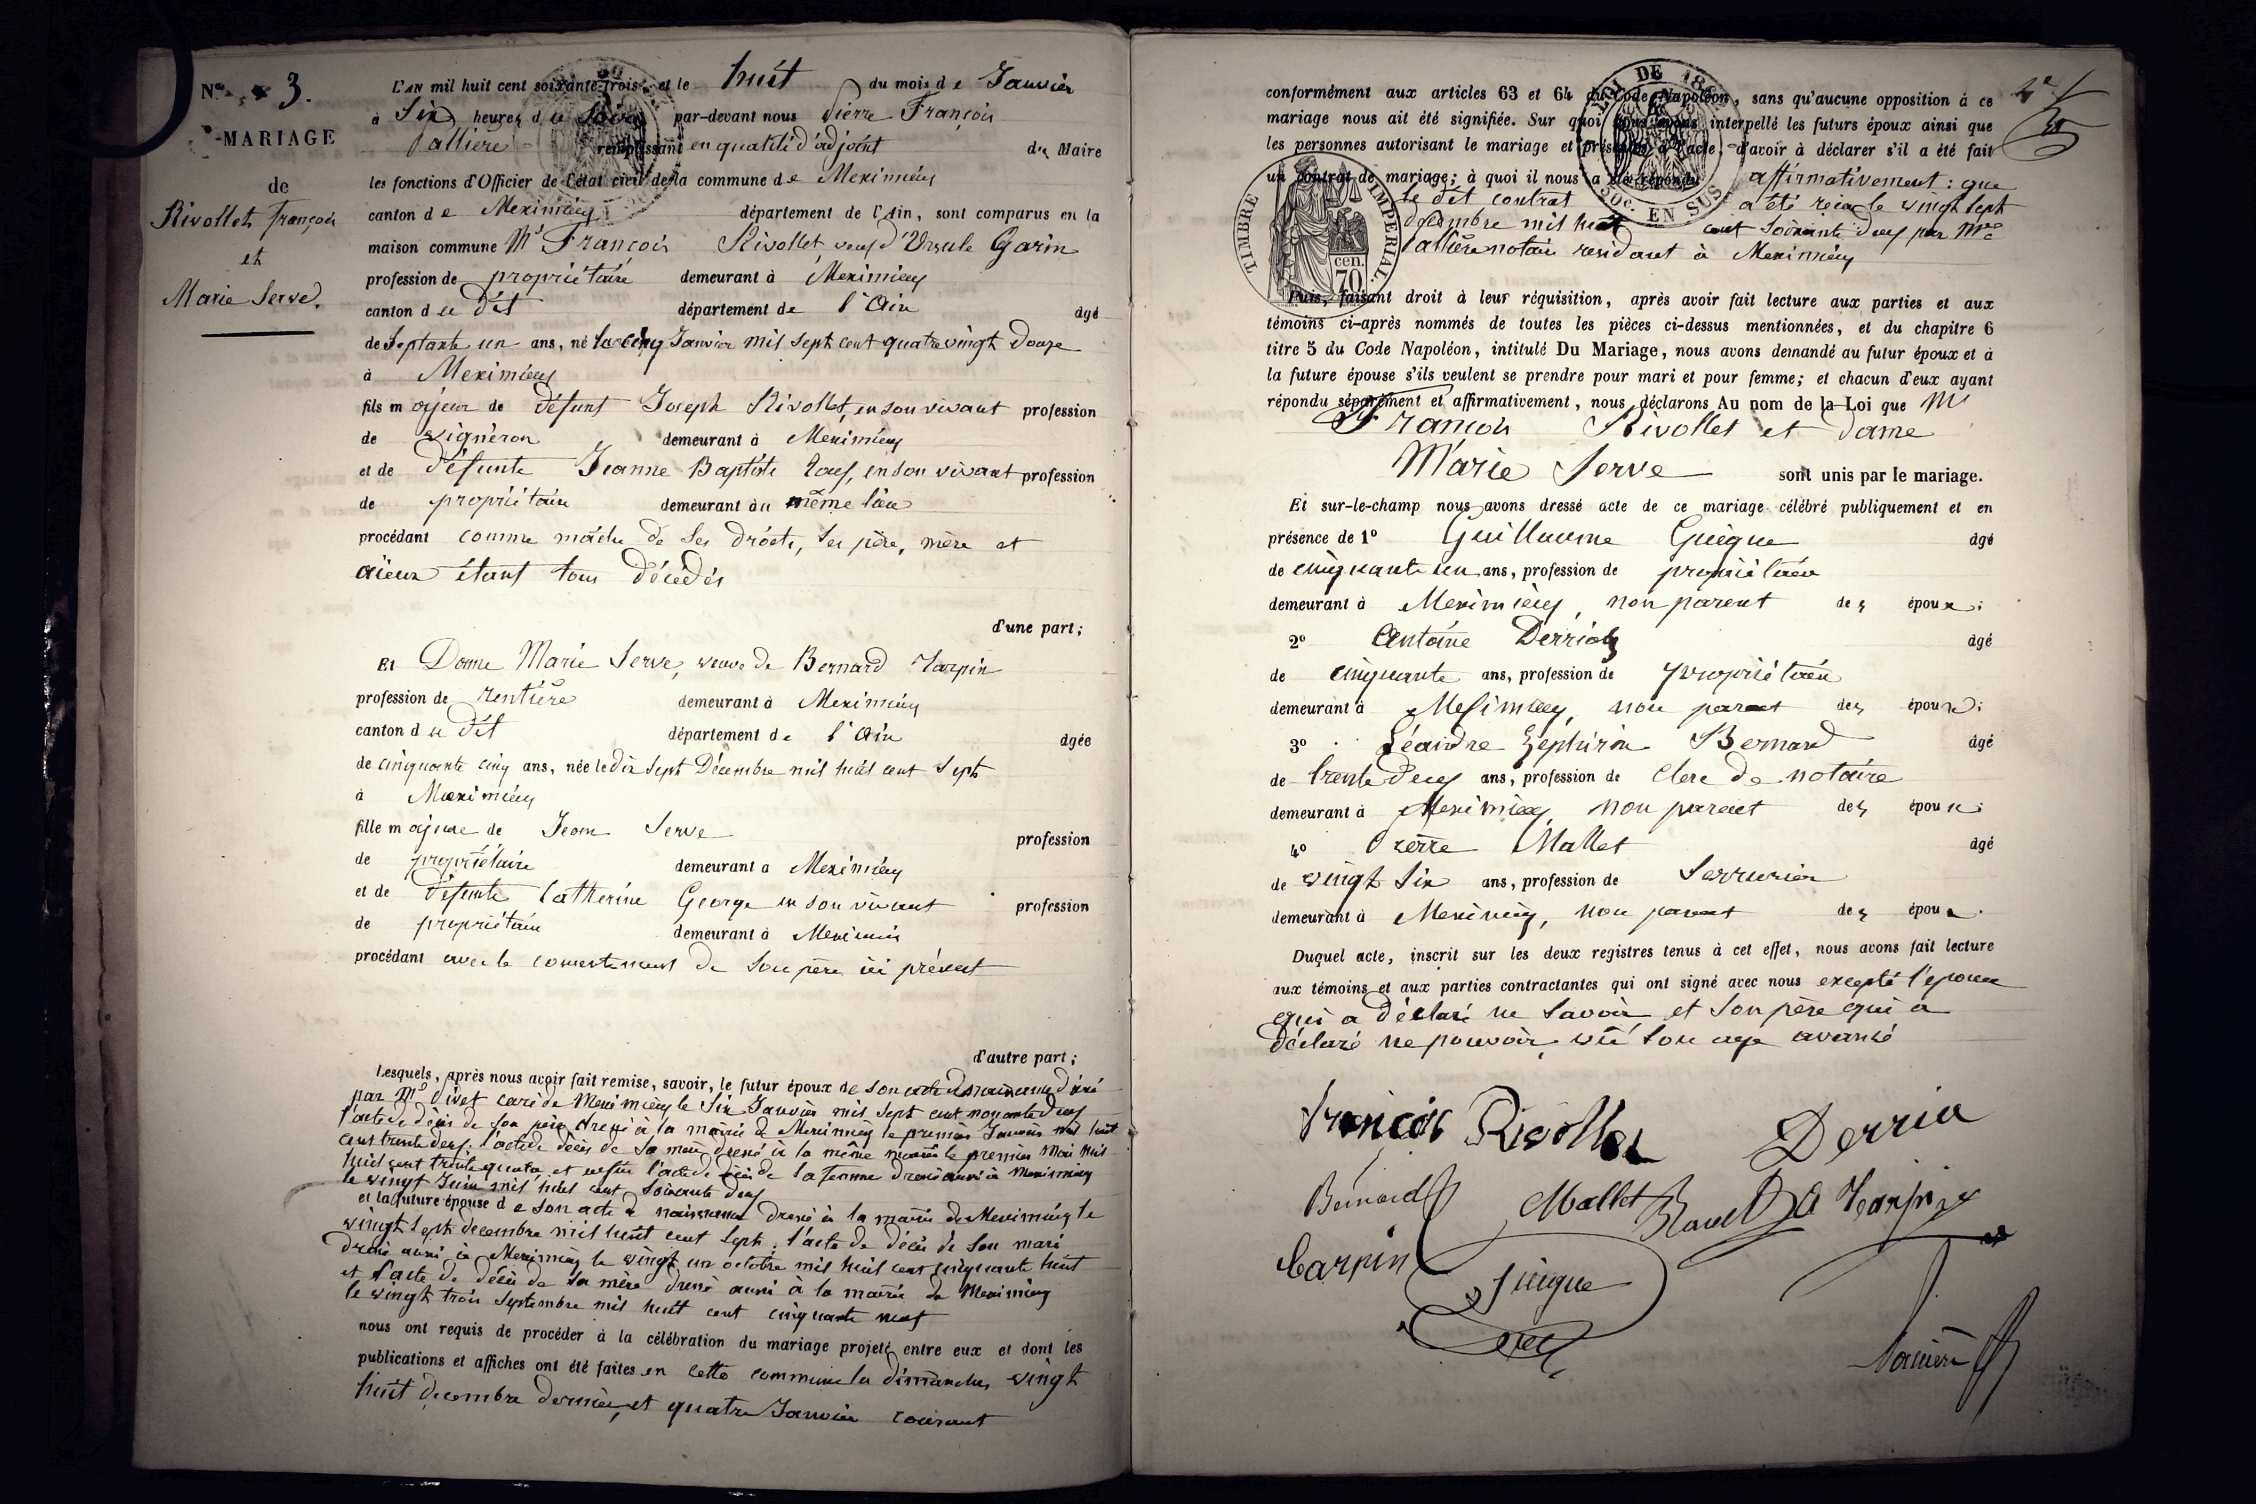 N.º 3.
MARIAGE
de
Rivollet François
et
Marie Serve.
L'AN mil huit cent soixante-trois et le huit du mois de Janvier
à Six heures du Soir par-devant nous Pierre François
Vallière remplissant en qualité d'adjoint du Maire
les fonctions d'Officier de l'état civil de la commune de Meximieux
canton de Meximieux département de l'Ain, sont comparus en la
maison commune Mr François Rivollet veuf d'Ursule Garin
profession de propriétaire demeurant à Meximieux
canton du dit département de l'Ain âgé
de Septante un ans, né le cinq Janvier mil sept cent quatre vingt douze
à Meximieux
fils majeur de défunt Joseph Rivollet, en son vivant profession
de vigneron demeurant à Meximieux
et de défunte Jeanne Baptiste en son vivant profession
de propriétaire demeurant au même lieu
procédant comme maître de ses droits, ses père, mère et
aïeux étant tous décédés
d'une part;
Et Dame Marie Serve, veuve de Bernard Carpin
profession de rentière demeurant à Meximieux
canton du dit département de l'Ain âgée
de cinquante cinq ans, née le dix sept Décembre mil huit cent sept
à Meximieux
fille majeure de Jean Serve profession
de propriétaire demeurant à Meximieux
et de défunte Catherine George en son vivant profession
de propriétaire demeurant à Meximieux
procédant avec le consentement de son père ici présent
d'autre part;
Lesquels, après nous avoir fait remise, savoir, le futur époux de son acte de naissance
par Mr curé de Meximieux le Six Janvier mil sept cent nonante deux
l'acte de décès de son père dressé à la mairie de Meximieux le premier Janvier mil huit
cent trente deux; l'acte de décès de sa mère dressé à la même mairie le premier Mai mil
huit cent trente quatre, et enfin l'acte de décès de sa femme dressé aussi à Meximieux
le vingt Juin mil huit cent soixante deux
et la future épouse de son acte de naissance dressé à la mairie de Meximieux le
vingt sept decembre mil huit cent sept; l'acte de décès de son mari
dressé aussi à Meximieux le vingt un octobre mil huit cent cinquante huit
et l'acte de décès de sa mère dressé aussi à la mairie de Meximieux
le vingt trois Septembre mil huit cent cinquante neuf
nous ont requis de procéder à la célébration du mariage projeté entre eux et dont les
publications et affiches ont été faites en cette commune les dimanches vingt
huit decembre dernier, et quatre Janvier courant
conformément aux articles 63 et 64 du Code Napoléon, sans qu'aucune opposition à ce
mariage nous ait été signifiée. Sur quoi nous avons interpellé les futurs époux ainsi que
les personnes autorisant le mariage et présentes à l'acte, d'avoir à déclarer s'il a été fait
un contrat de mariage; à quoi il nous a été répondu affirmativement: que
le dit contrat a été reçu le vingt sept
decembre mil huit cent soixante deux par Me
Vallière notaire residant à Meximieux
TIMBRE IMPERIAL
cen.
70
LOI DE 18
50c. EN SUS
Puis, faisant droit à leur réquisition, après avoir fait lecture aux parties et aux
témoins ci-après nommés de toutes les pièces ci-dessus mentionnées, et du chapitre 6
titre 5 du Code Napoléon, intitulé Du Mariage, nous avons demandé au futur époux et à
la future épouse s'ils veulent se prendre pour mari et pour femme; et chacun d'eux ayant
répondu séparément et affirmativement, nous déclarons Au nom de la Loi que Mr
François Rivollet et Dame
Marie Serve sont unis par le mariage.
Et sur-le-champ nous avons dressé acte de ce mariage célébré publiquement et en
présence de 1º Guillaume Guigue âgé
de cinquante un ans, profession de propriétaire
demeurant à Meximieux, non parent des époux;
2º Antoine Derriaz âgé
de cinquante ans, profession de propriétaire
demeurant à Meximieux, non parent des époux;
3º Léandre Zéphirin Bernard âgé
de trente deux ans, profession de Clerc de notaire
demeurant à Meximieux, non parent des époux;
4º Pierre Mallet âgé
de vingt six ans, profession de Serrurier
demeurant à Meximieux, non parent des époux.
Duquel acte, inscrit sur les deux registres tenus à cet effet, nous avons fait lecture
aux témoins et aux parties contractantes qui ont signé avec nous excepté l'epouse
qui a déclaré ne savoir et son père qui a
déclaré ne pouvoir, vu son age avancé
françois Rivollet Derria
Bernard Mallet Carpin
Carpin
Guigue
Vallière